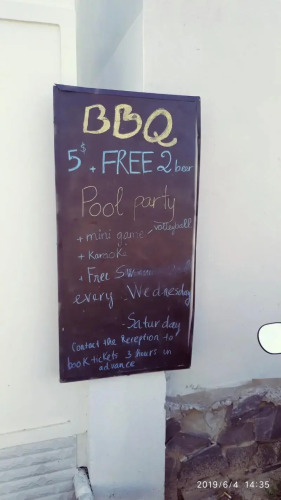 BBQ
5$ + FREE 2 bear
Pool party
+ mini game, volleyball
+ Karaoke
+ Free Swimming
every Wednesday
- Saturday
Contact the Reception to
book tickets 3 hours in
advance
2019/6/4 14:35